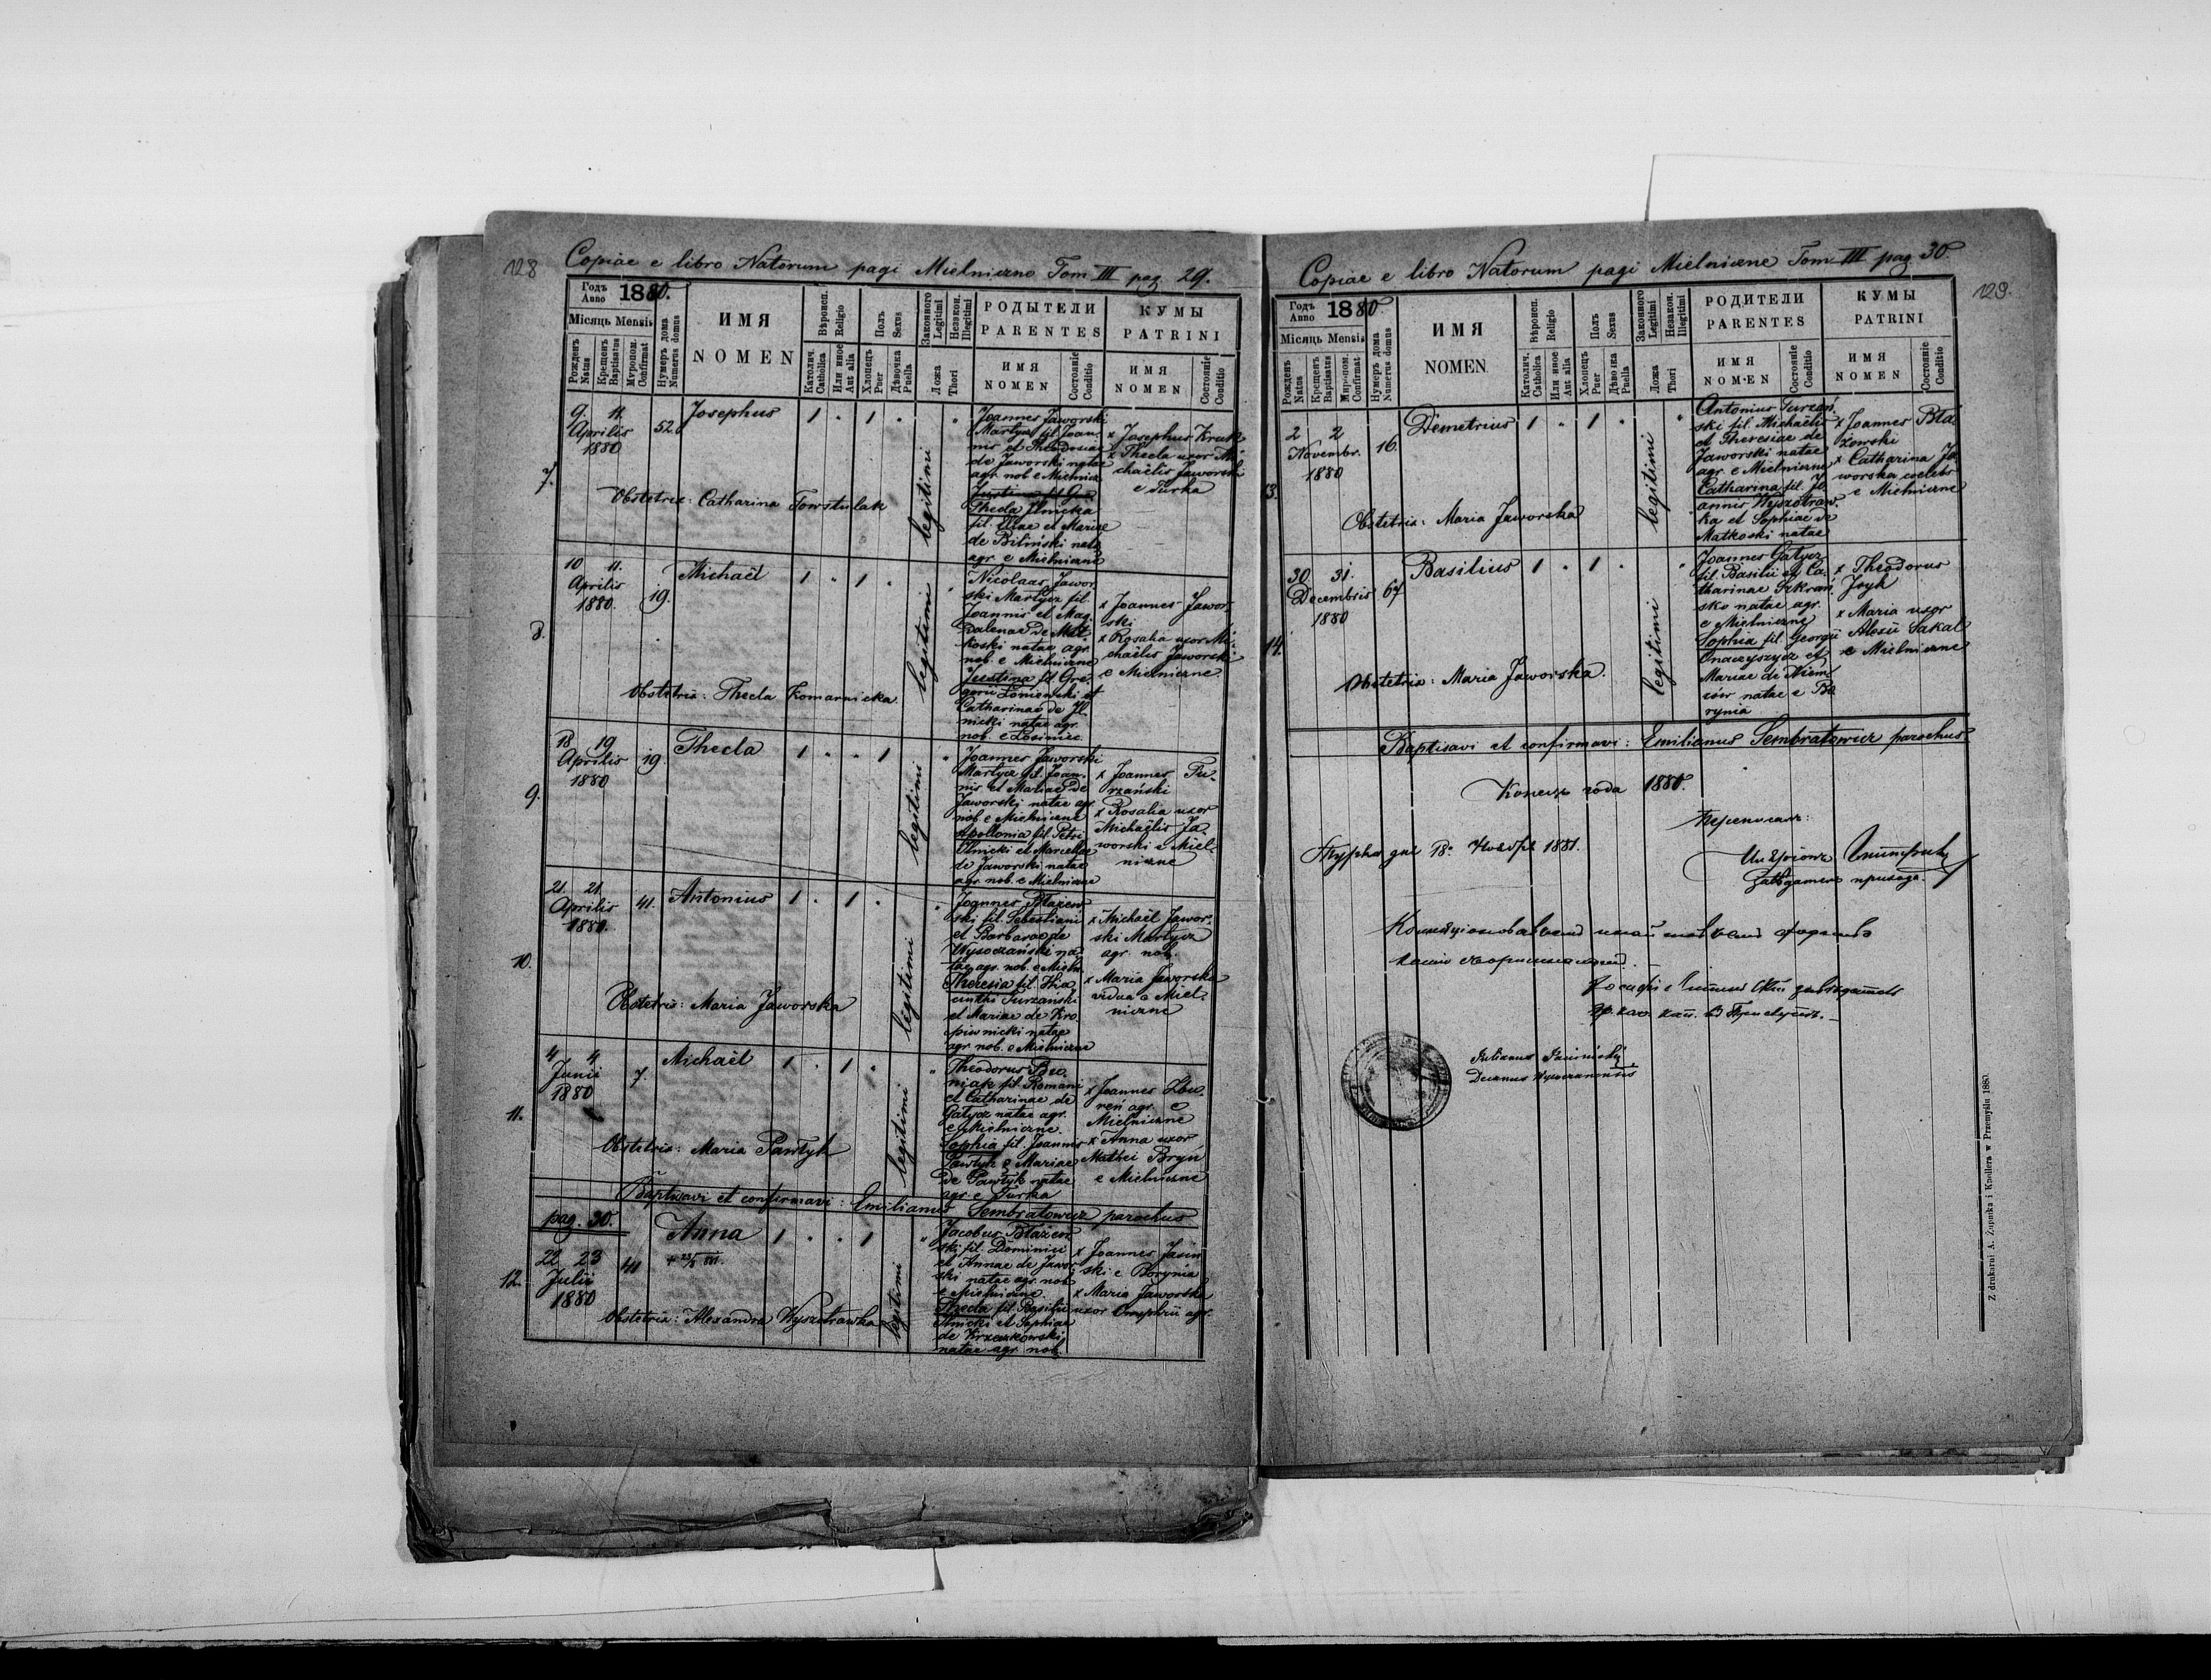 128
Copiae e libro Natorum pagi Mielniczne Tom III pag. 29.
Годъ Anno 1880.
Місяць Mensis
Рожденъ Natus
Крещенъ Baptisatus
Мѵропом. Confirmat
Нумеръ дома Numerus domus
ИМЯ NOMEN
Вѣроисп. Religio
Католич. Catholica
Или иное Aut alia
Полъ Sexus
Хлопецъ Puer
Дѣвочка Puella
Законного Legitimi
Незакон. Illegitimi
Ложа Thori
РОДЫТЕЛИ PARENTES
ИМЯ NOMEN
Состояніе Conditio
КУМЫ PATRINI
ИМЯ NOMEN
Состояніе Conditio
7.
9. 11.
Aprilis
1880
52.
Josephus
1 " 1 "
legitimi
Joannes Jaworski
Martycz fil. Joan-
nis et Theodosiae
de Jaworski natae
agr. nob. e Mielnicz.
Thecla Ilnicka
fil. Eliae et Mariae
de Biliński nata
agr. e Mielniczne
x Josephus Kruk
x Thecla uxor Mi-
chaëlis Jaworski
e Turka
Obstetrix: Catharina Towstulak
8.
10 11.
Aprilis
1880.
19.
Michaël
1 " 1 "
legitimi
Nicolaus Jawor-
ski Martycz fil.
Joannis et Mag-
dalenae de Mat-
koski natae agr.
nob. e Mielniczne
Justina fil. Gre-
gorii Łoniewski et
Catharinae de Il-
nicki natae agr.
nob. e Łosiniec
x Joannes Jawor-
ski
x Rosalia uxor Mi-
chaëlis Jaworski
e Mielniczne
Obstetrix: Thecla Komarnicka
9.
18 19
Aprilis
1880
19.
Thecla
1 " " 1
legitimi
Joannes Jaworski
Martycz fil. Joan-
nis et Mariae de
Jaworski natae agr.
nob. e Mielniczne
Apollonia fil. Petri
Ilnicki et Marcellae
de Jaworski natae
agr. nob. e Mielniczne
x Joannes Tu-
rzański
x Rosalia uxor
Michaëlis Ja-
worski e Miel-
niczne
10.
21. 21.
Aprilis
1880.
41.
Antonius
1 . 1 .
legitimi
Joannes Błażew-
ski fil. Sebastiani
et Barbarae de
Wysoczański na-
tae agr. nob. e Mieln.
Theresia fil. Hia-
cinthi Turzański
et Mariae de Kro-
piwnicki natae
agr. nob. e Mielniczne
x Michaël Jawor-
ski Martycz
agr. nob.
x Maria Jaworska
vidua e Miel-
niczne
Obstetrix: Maria Jaworska
11.
4 4
Junii
1880
7.
Michaël
1 . 1 .
legitimi
Theodorus
fil. Romani
et Catharinae de
Gatycz natae agr.
e Mielniczne.
Sophia fil. Joannis
Pawłyk e Mariae
de Pawłyk natae
agr. e Turka
x Joannes
agr. e
Mielniczne
x Anna uxor
Mathei Bryń
e Mielniczne
Obstetrix: Maria Pawłyk
Baptisavi et confirmavi: Emilianus Sembratowicz parochus
pag. 30.
12.
22 23
Julii
1880
41
Anna
1 . . 1
legitimi
Jacobus Błażew-
ski fil. Dominici
et Annae de Jawor-
ski natae agr. nob.
e Mielniczne.
Thecla fil. Basilii
Ilnicki et Sophiae
de Krzeczkowski
natae agr. nob.
x Joannes Jasiń-
ski e Borynia
x Maria Jaworska
uxor Onuphrii agr.
Obstetrix: Alexandra Wyszotrawka
129.
Copiae e libro Natorum pagi Mielniczne Tom III pag. 30.
Годъ Anno 1880
Місяць Mensis
Рожденъ Natus
Крещенъ Baptisatus
Мѵропом. Confirmat
Нумеръ дома Numerus domus
ИМЯ NOMEN.
Вѣроисп. Religio
Католич. Catholica
Или иное Aut alia
Полъ Sexus
Хлопецъ Puer
Дѣвочка Puella
Законного Legitimi
Незакон. Illegitimi
Ложа Thori
РОДИТЕЛИ PARENTES
ИМЯ NOMEN
Состояніе Conditio
КУМЫ PATRINI
ИМЯ NOMEN
Состояніе Conditio
13.
2 2
Novembr.
1880
16.
Demetrius
1 " 1 "
legitimi
Antonius Turzań-
ski fil. Michaëlis
et Theresiae de
Jaworski natae
agr. e Mielniczne
Catharina fil. Jo-
annis Wyszotraw-
ka et Sophiae de
Matkoski natae
x Joannes Bła-
żowski
x Catharina Ja-
worska coelebs
e Mielniczne
Obstetrix: Maria Jaworska
14.
30 31.
Decembris
1880
67
Basilius
1 . 1 .
legitimi
Joannes Gatycz
fil. Basilii et Ca-
tharinae
natae agr.
e Mielniczne
Sophia fil. Georgii
et
Mariae de
natae e Bo-
rynia
x Theodorus
x Maria uxor
Alexii Sakal
e Mielniczne
Obstetrix: Maria Jaworska.
Baptisavi et confirmavi: Emilianus Sembratowicz parochus
Конецъ года 1880.
1881.
Decanus Wysoczanensis
Z drukarni A. Żupnika i Knollera w Przemyślu 1880.